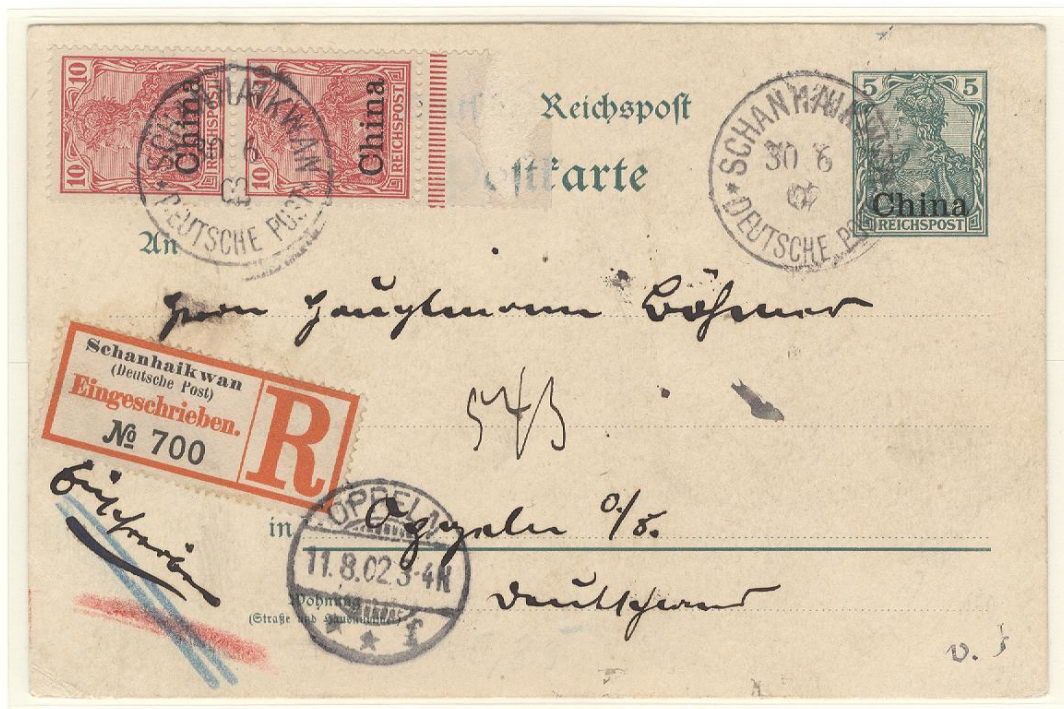 10 REICHSPOST China
10 REICHSPOST China
SCHANHAIKWAN
6
02
DEUTSCHE POST
Reichspost
Postkarte
SCHANHAIKWAN
30 6
02
DEUTSCHE POST
5 5
China
REICHSPOST
An
Herrn Hauptmann Böhmer
Schanhaikwan
(Deutsche Post)
Eingeschrieben.
№ 700
R
543
Einschreiben
in Oppeln o/S.
OPPELN
11.8.02.3-4N
* * f
Deutschland
Wohnung
(Straße und Hausnummer)